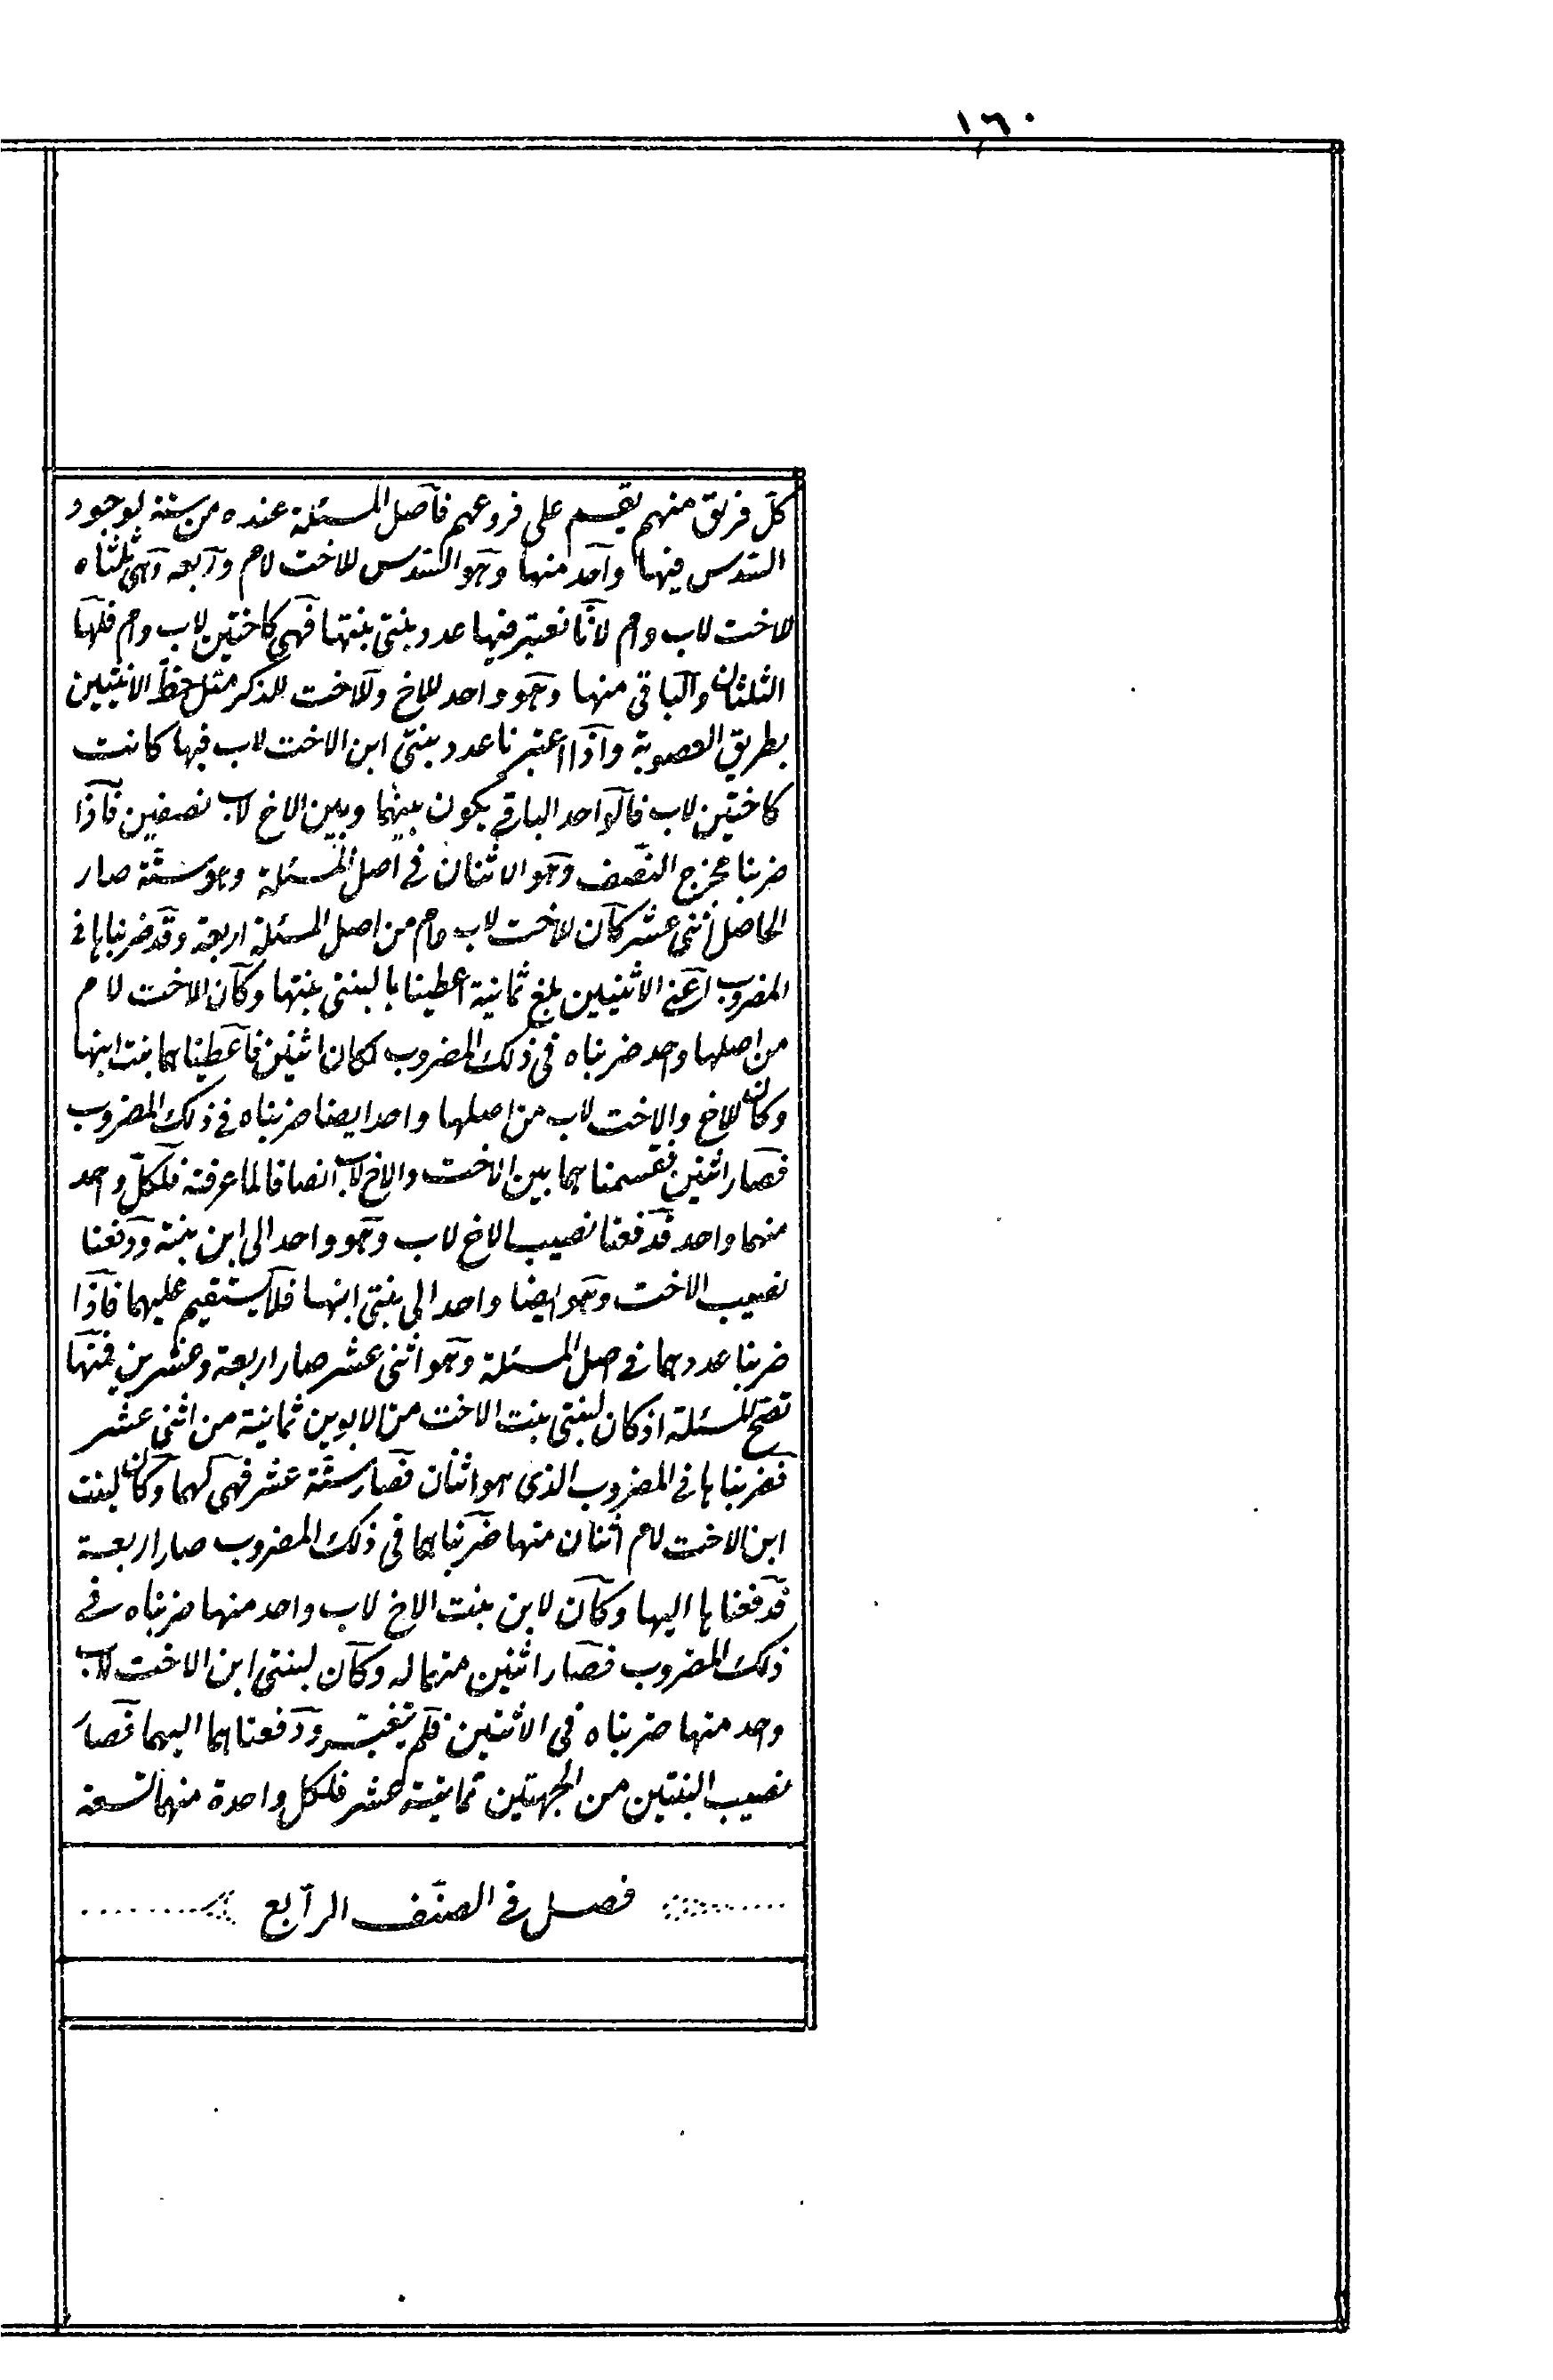 ١٦٠
كل فريق منهم يقسم على فروعهم فآصل المسئلة عنده من ستة لوجود
السّدس فيها وآحد منها وهو السّدس للاخت لام وآربعه وهى ثلثاه
للاخت لاب وام لانّا نعتبر فيها عدد بنتى بنتها فهى كاختين لاب وام فلها
الثلثان والباقى منها وهو واحد للاخ وللاخت للذكر مثل حظّ الانثيين
بطريق العصوبة واذا اعتبرنا عدد بنتى ابن الاخت لاب فيها كانت
كاختين لاب فالواحد الباقى يكون بينهما وبين الاخ لاب نصفين فاذا
ضربنا مخرج النّصف وهو الاثنان فى اصل المسئلة وهو ستّة صار
الحاصل اثنى عشر كان للاخت لاب وام من اصل المسئلة اربعة وقد ضربناها فى
المضروب آعنى الاثنين بلغ ثمانية اعطيناها لبنتى بنتها وكان للاخت لام
من اصلها واحد ضربناه فى ذلك المضروب فكان اثنين فاعطيناهما بنت ابنها
وكان للاخ والاخت لاب من اصلها واحد ايضا ضربناه فى ذلك المضروب
فصار اثنين فقسمناهما بين الاخت والاخ لاب انصافا لما عرفته فلكلّ واحد
منهما واحد فدفعنا نصيب الاخ لاب وهو واحد الى ابن بنته ودفعنا
نصيب الاخت وهو ايضا واحد الى بنتى ابنها فلا يستقيم عليهما فاذا
ضربنا عددهما فى اصل المسئلة وهو اثنى عشر صار اربعة وعشرين فمنها
تصحّ المسئلة اذ كان لبنتى بنت الاخت من الابوين ثمانية من اثنى عشر
فضربناها فى المضروب الذى هو اثنان فصار ستّة عشر فهى لهما وكان لبنت
ابن الاخت لام اثنان منها ضربناهما فى ذلك المضروب صار اربعة
فدفعناها اليها وكان لابن بنت الاخ لاب واحد منها ضربناه فى
ذلك المضروب فصار اثنين فهما له وكان لبنتى ابن الاخت لاب
واحد منها ضربناه فى الاثنين فلم يتغيّر ودفعناهما اليهما فصار
نصيب البنتين من الجهتين ثمانية عشر فلكل واحدة منهما تسعة
فصل فى الصنّف الرآبع